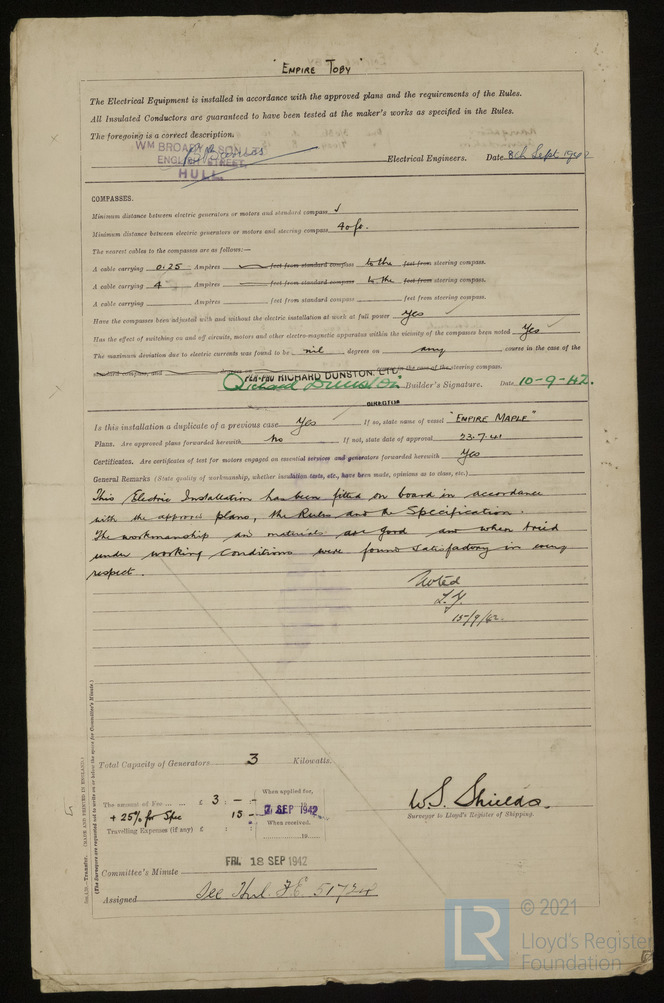 "EMPIRE TOBY"
The Electrical Equipment is installed in accordance with the approved plans and the requirements of the Rules.
All Insulated Conductors are guaranteed to have been tested at the maker's works as specified in the Rules.
The foregoing is a correct description.
WM BROADY & SON LTD
ENGLISH STREET,
HULL
Electrical Engineers. Date 8th Sept 1942
COMPASSES.
Minimum distance between electric generators or motors and standard compass
Minimum distance between electric generators or motors and steering compass 40 ft.
The nearest cables to the compasses are as follows:—
A cable carrying 0.25 Ampères feet from standard compass to the feet from steering compass.
A cable carrying 4 Ampères feet from standard compass to the feet from steering compass.
A cable carrying Ampères feet from standard compass feet from steering compass.
Have the compasses been adjusted with and without the electric installation at work at full power Yes
Has the effect of switching on and off circuits, motors and other electro-magnetic apparatus within the vicinity of the compasses been noted Yes
The maximum deviation due to electric currents was found to be nil degrees on any course in the case of the
standard compass, and degrees on course in the case of the steering compass.
PER-PRO RICHARD DUNSTON, LTD.
Richard Dunston Builder's Signature. Date 10-9-42.
DIRECTOR
Is this installation a duplicate of a previous case Yes If so, state name of vessel "EMPIRE MAPLE"
Plans. Are approved plans forwarded herewith No If not, state date of approval 23.7.41
Certificates. Are certificates of test for motors engaged on essential services and generators forwarded herewith Yes
General Remarks (State quality of workmanship, whether insulation tests, etc., have been made, opinions as to class, etc.)
This Electric Installation has been fitted on board in accordance
with the approved plans, the Rules and the Specification.
The workmanship and materials are good and when tried
under working conditions were found satisfactory in every
respect.
Noted
15/9/42.
Total Capacity of Generators 3 Kilowatts.
The amount of Fee £ 3 : - : -
When applied for,
7 SEP 1942
+ 25% for Spec 15 -
When received,
Travelling Expenses (if any) £ : :
19
W.S. Shields.
Surveyor to Lloyd's Register of Shipping.
FRI. 18 SEP 1942
Committee's Minute
Assigned See Hul. F.E. 51724
Transfer. (MADE AND PRINTED IN ENGLAND.)
(The Surveyors are requested not to write on or below the space for Committee's Minute.)
LR
© 2021
Lloyd's Register
Foundation